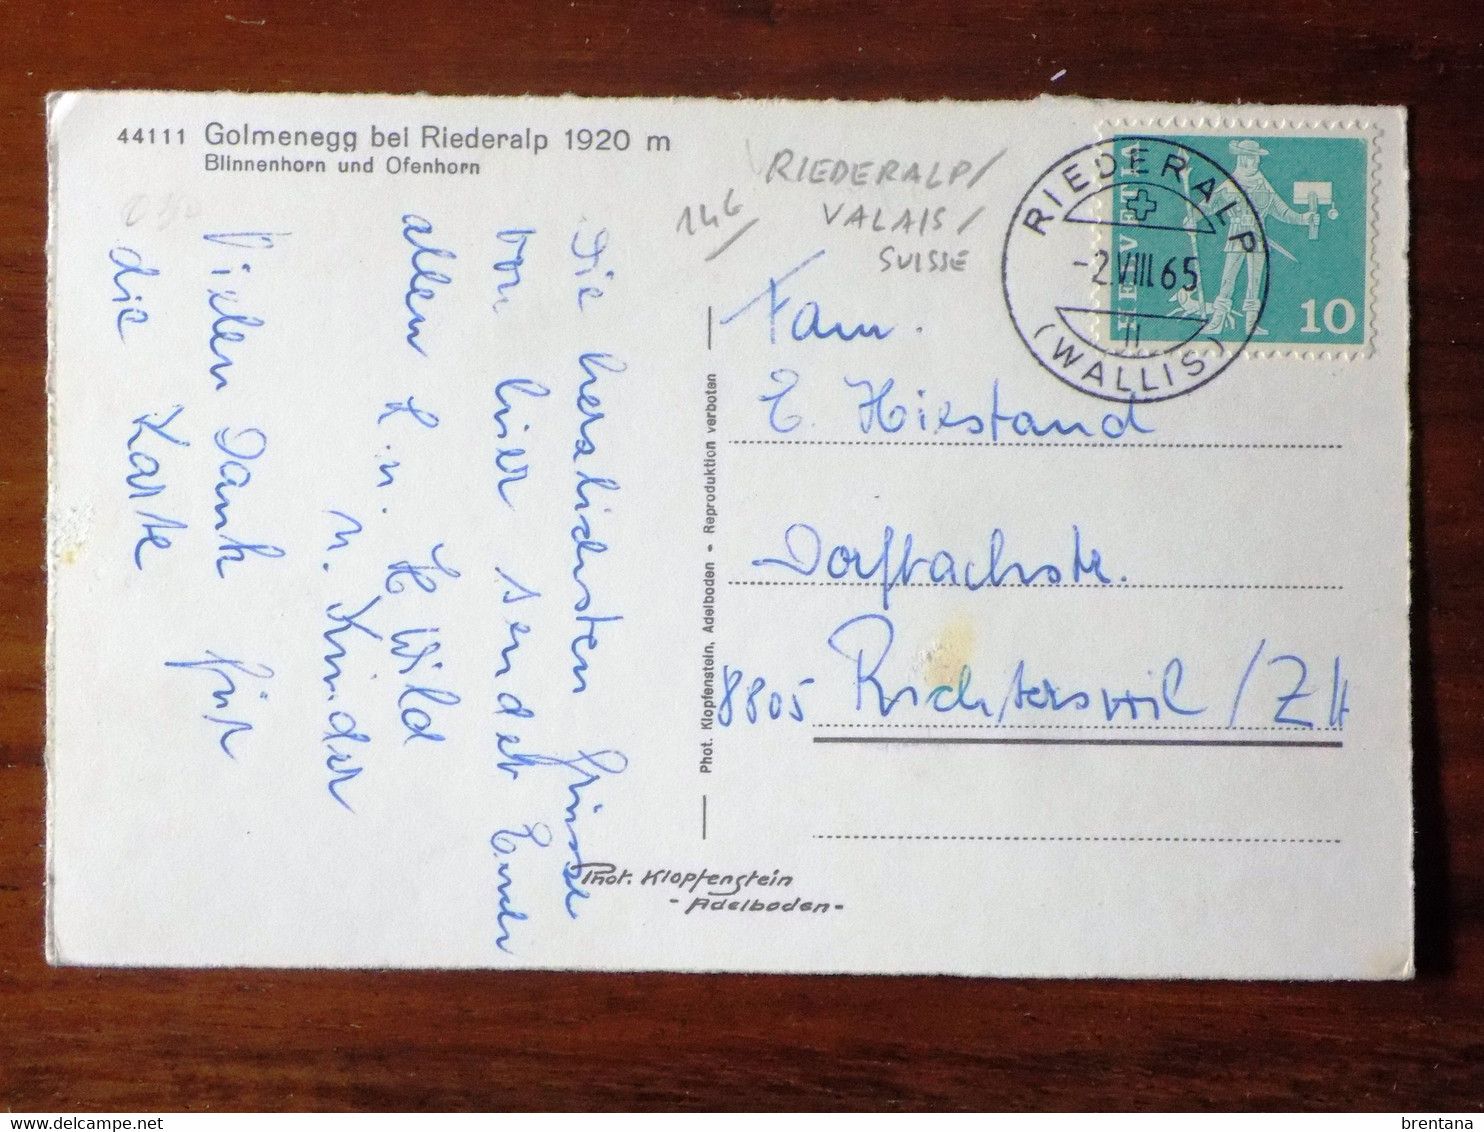 44111 Golmenegg bei Riederalp 1920 m
Blinnenhorn und Ofenhorn
RIEDERALP/
VALAIS/
SUISSE
RIEDERALP
-2.VIII.65
11
(WALLIS)
HELVETIA
10
Die herzlichsten Grüsse
von hier sendet Euch
allen L. u. H Wild
u. Kinder
Vielen Dank für
die Karte
Fam.
E. Hiestand
Dorfbachstr.
8805 Richterswil/ZH
Phot. Klopfenstein, Adelboden - Reproduktion verboten
Phot. Klopfenstein
- Adelboden -
brentana